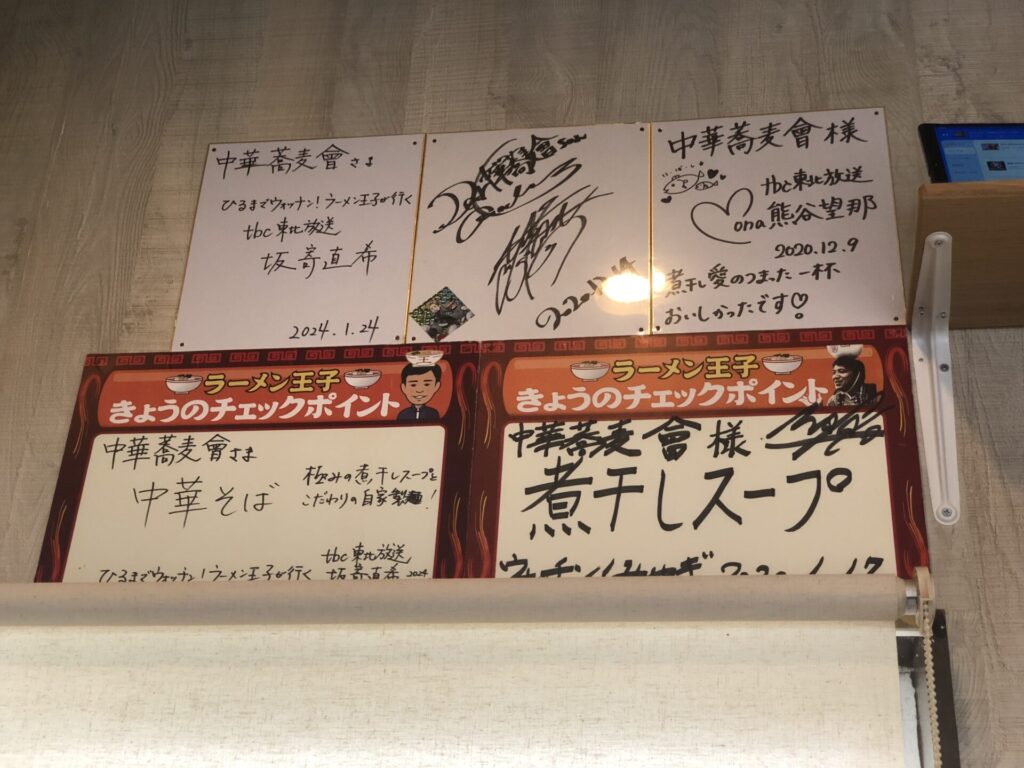 中華蕎麦會さま
ひるまでウォッチン!ラーメン王子が行く
tbc東北放送
坂寄直希
2024.1.24
中華蕎麦會
中華蕎麦會様
tbc東北放送
ona熊谷望那
2020.12.9
煮干し愛のつまった一杯
おいしかったです♡
ラーメン王子
きょうのチェックポイント
中華蕎麦會さま
中華そば
極みの煮干しスープと
こだわりの自家製麺!
tbc東北放送
ひるまでウォッチン!ラーメン王子が行く
坂寄直希 2024
ラーメン王子
きょうのチェックポイント
中華蕎麦會様
煮干しスープ